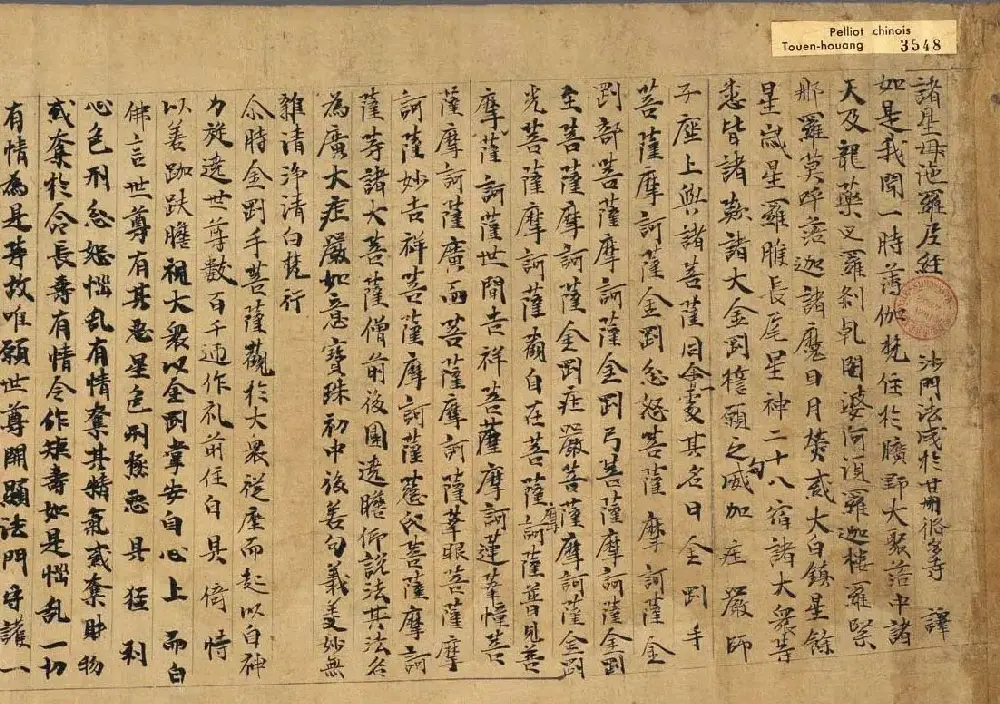 Pelliot chinois
Touen-houang 3548
諸星母陁羅尼經 沙門法成於甘州脩多寺 譯
如是我聞一時薄伽梵住於曠野大聚落中諸
天及龍藥叉羅剎乹闥婆阿須羅迦樓羅緊
那羅莫呼落迦諸魔日月熒惑大白鎮星餘
星歲星羅睺長尾星神二十八宿諸大衆等
悉皆諸大金剛誓願之句威加庄嚴師
子座上與諸菩薩同會處其名曰金剛手
菩薩摩訶薩金剛忿怒菩薩摩訶薩金
剛部菩薩摩訶薩金剛弓菩薩摩訶薩金剛
主菩薩摩訶薩金剛庄嚴菩薩摩訶薩金剛
光菩薩摩訶薩觀自在菩薩摩訶薩普見菩
薩摩訶薩世間吉祥菩薩摩訶薩蓮華幢菩
薩摩訶薩廣面菩薩摩訶薩華眼菩薩摩
訶薩妙吉祥菩薩摩訶薩慈氏菩薩摩訶
薩等諸大菩薩僧前後圍遶瞻仰說法其法名
為廣大庄嚴如意寶珠初中後善句義美妙無
雜清淨清白梵行
尒時金剛手菩薩觀於大衆從座而起以自神
力旋遶世尊數百千迊作礼前住自具倚恃
以善跏趺瞻視大衆以金剛掌安自心上而白
佛言世尊有其惡星色形極惡具猛利
心色形忿怒惱乱有情奪其精氣或奪財物
或奪於命長壽有情令作短壽如是惱乱一切
有情為是等故唯願世尊開顯法門守護一